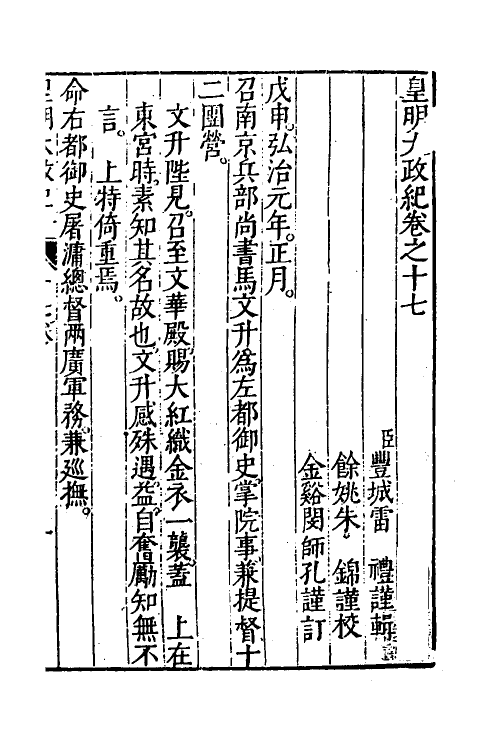 皇明大政紀卷之十七
臣豐城雷　禮謹輯
餘姚朱　錦謹校
金谿閔師孔謹訂
戊申。弘治元年。正月。
召南京兵部尚書馬文升為左都御史。掌院事兼提督十
二團營。
文升陛見。召至文華殿。賜大紅織金衣一襲。蓋　上在
東宮時。素知其名故也。文升感殊遇。益自奮勵。知無不
言。　上特倚重焉。
命右都御史屠滽總督兩廣軍務。兼巡撫。